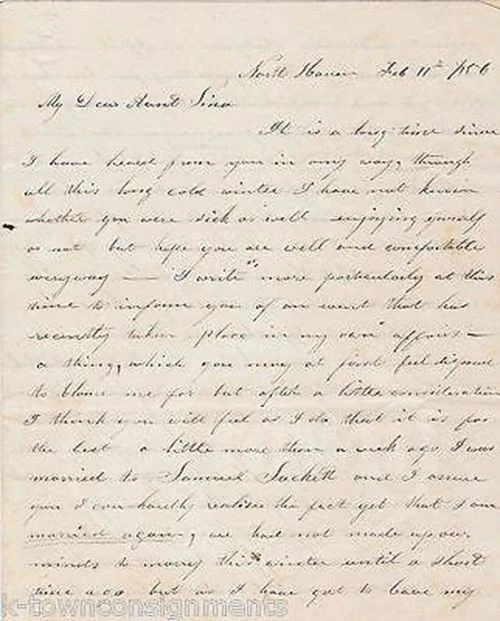 North Haven Feb 11th 1856
My Dear Aunt Sina
It is a long time since
I have heard from you in any way, through
all this long cold winter I have not known
whether you were sick or well enjoying yourself
or not but hope you are well and comfortable
everyway — I write more particularly at this
time to inform you of an event that has
recently taken place in my own affairs —
a thing, which you may at first feel disposed
to blame me for but after a little consideration
I think you will feel as I do that it is for
the best a little more than a week ago I was
married to Samuel Sackett and I assure
you I can hardly realise the fact yet that I am
married again, we had not made up our
minds to marry this winter until a short
time ago but as I have got to leave my
k-townconsignments